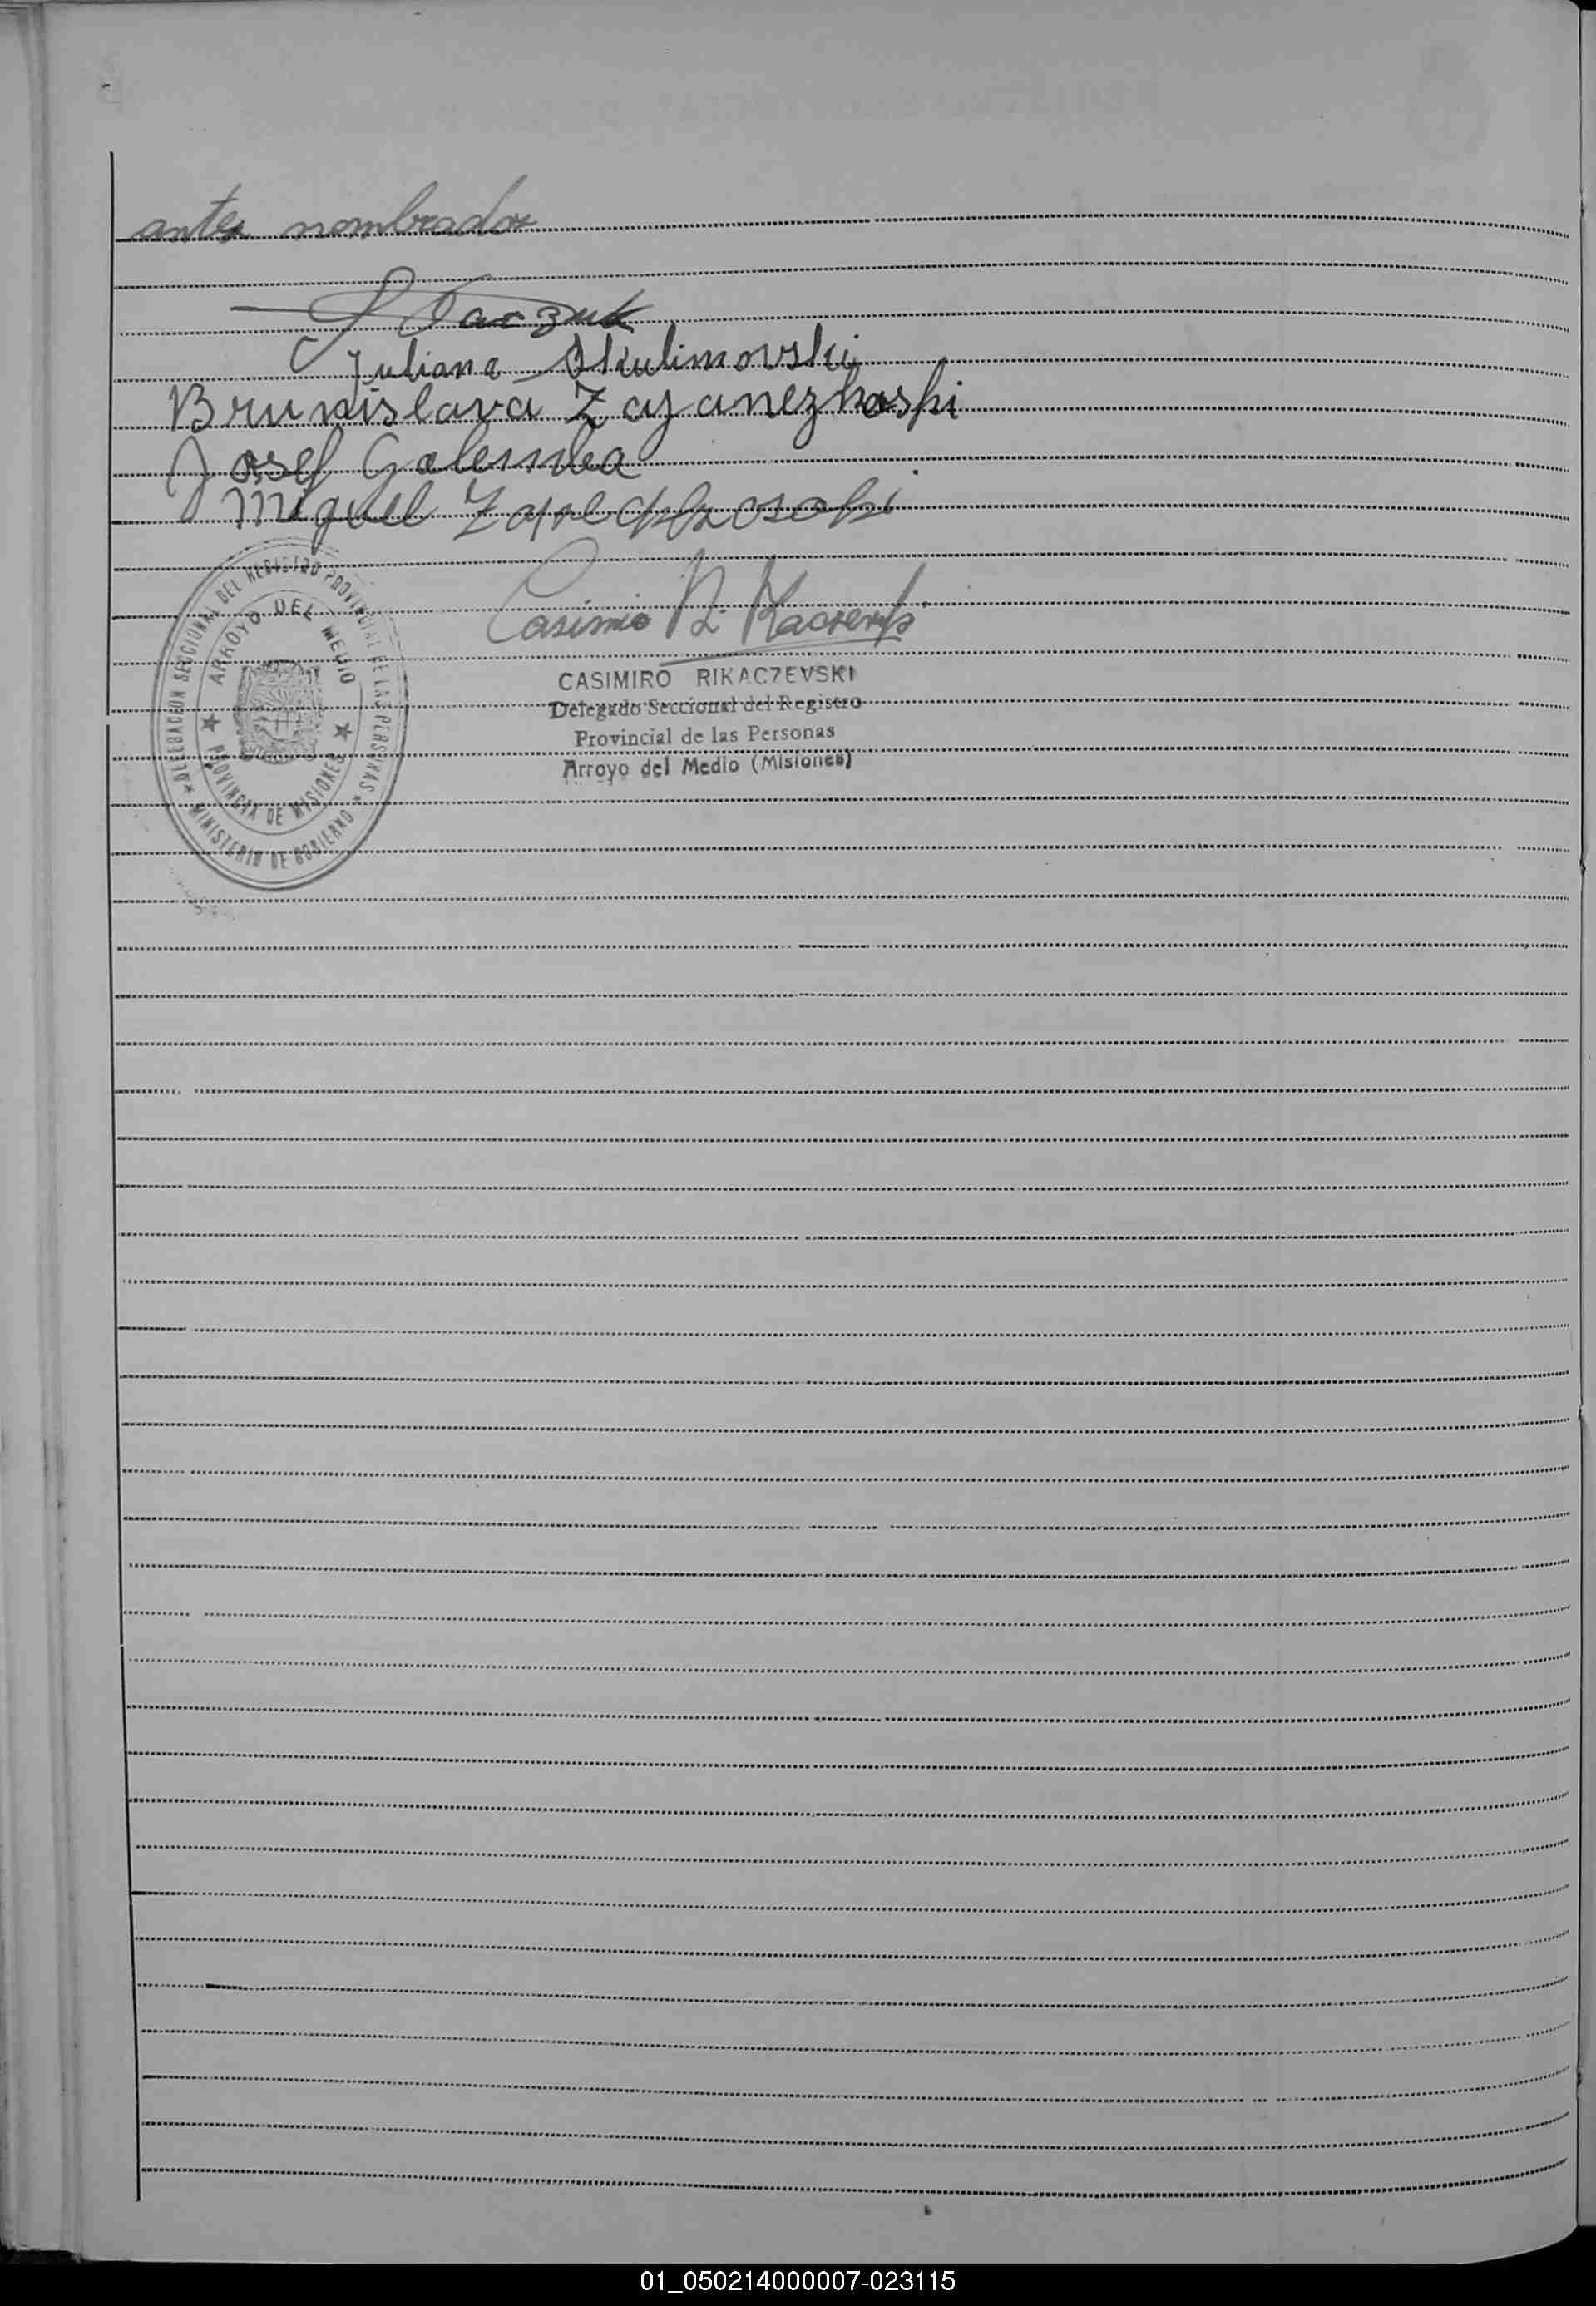 antes nombrados
Juliana Skulimovski
Brunislava Zajanezkoski
Josef Galemba
Miguel
Casimiro R.
DELEGACION SECCIONAL DEL REGISTRO PROVINCIAL DE LAS PERSONAS
ARROYO DEL MEDIO
PROVINCIA DE MISIONES
MINISTERIO DE GOBIERNO
CASIMIRO RIKACZEVSKI
Delegado Seccional del Registro
Provincial de las Personas
Arroyo del Medio (Misiones)
01_050214000007-023115